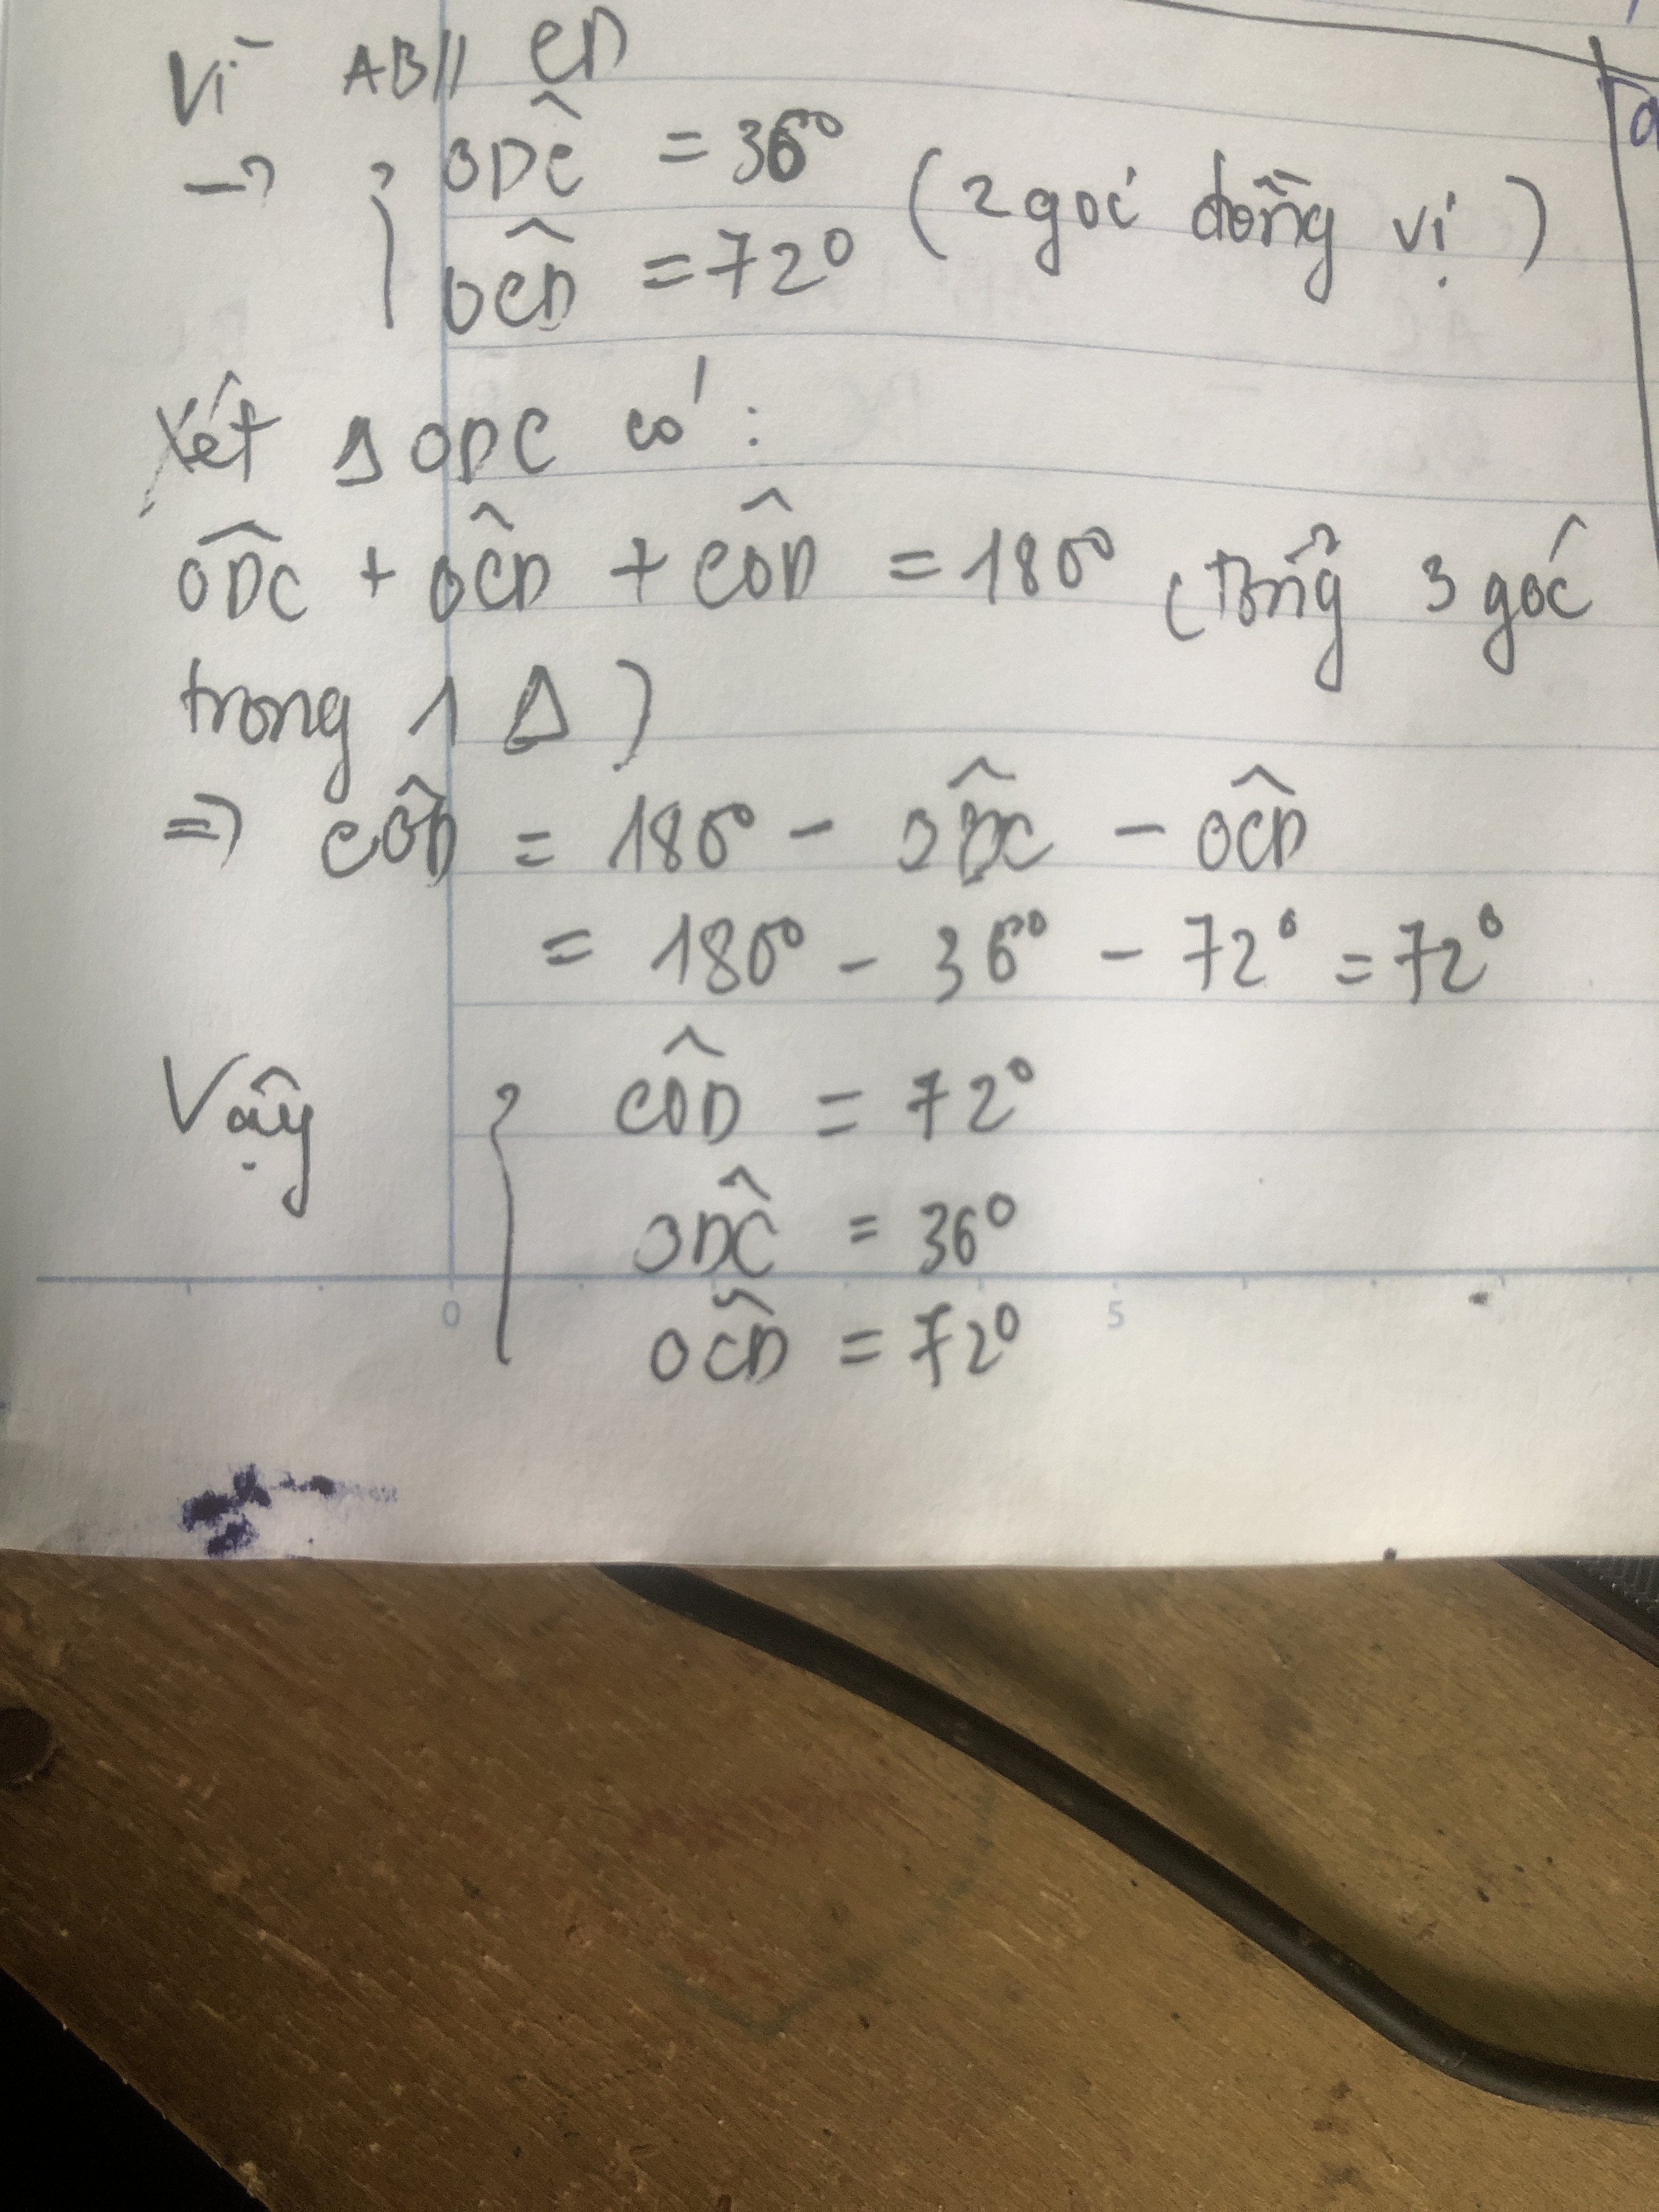 Vì AB // CD
=> { ODĈ = 36°
OCD̂ = 72° (2 góc đồng vị)
Xét Δ ODC có:
ODC̑ + OĈD + CÔD = 180° (tổng 3 góc
trong 1 Δ)
=> CÔD = 180° - OD̂C - OĈD
= 180° - 36° - 72° = 72°
Vậy { CÔD = 72°
OD̂C = 36°
OĈD = 72°
0 5